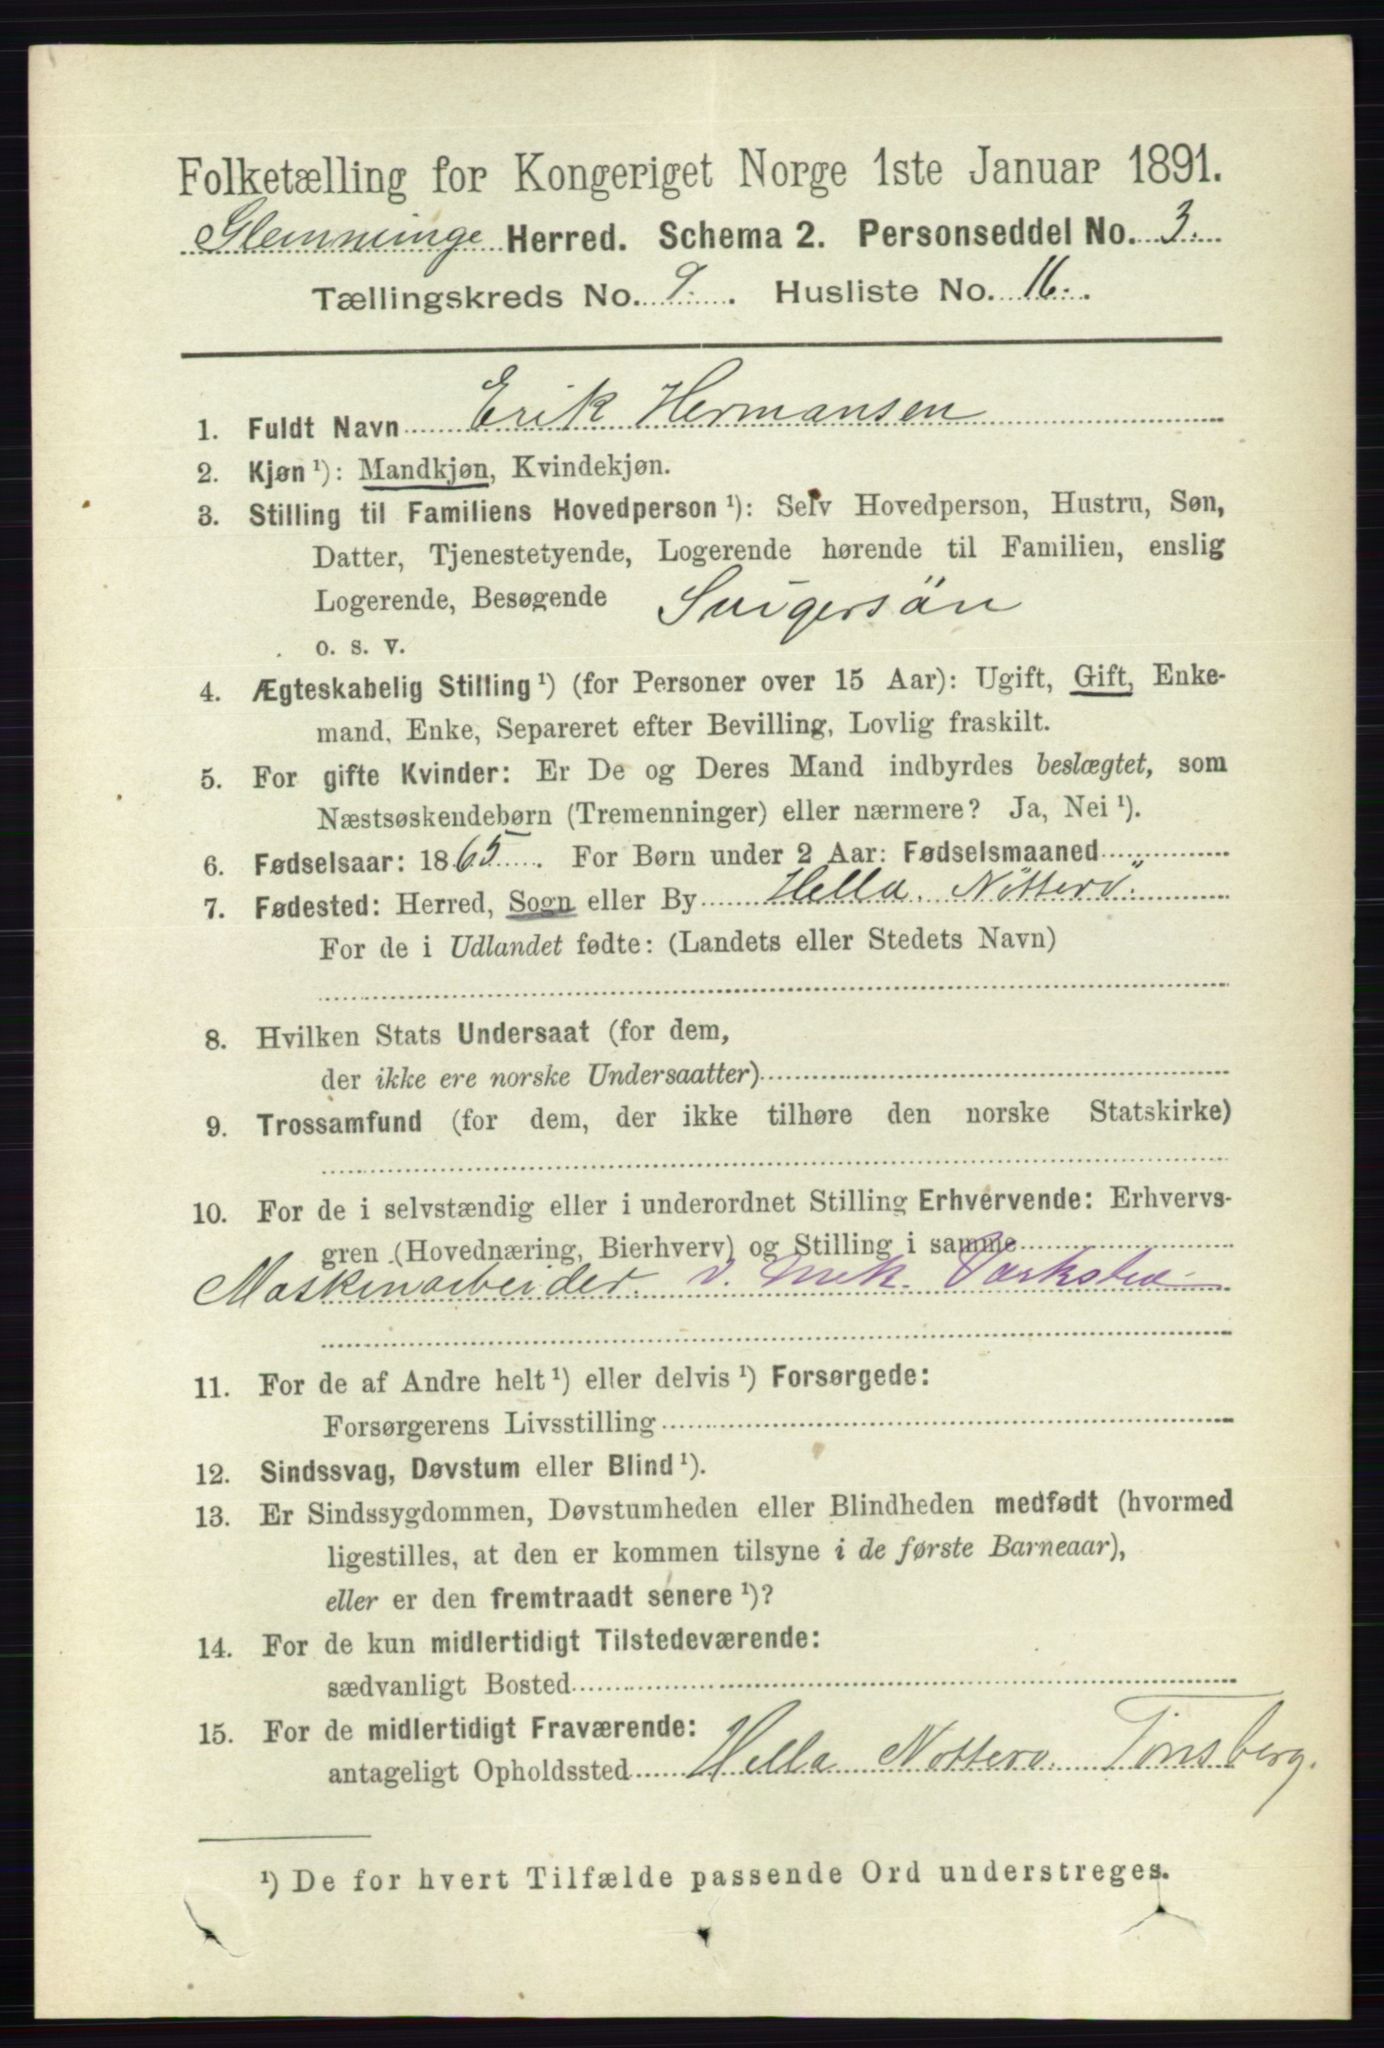 Folketælling for Kongeriget Norge 1ste Januar 1891.
Glemminge Herred. Schema 2. Personseddel No. 3.
Tællingskreds No. 9. Husliste No. 16.
1. Fuldt Navn Erik Hermansen
2. Kjøn ¹): Mandkjøn, Kvindekjøn.
3. Stilling til Familiens Hovedperson ¹): Selv Hovedperson, Hustru, Søn,
Datter, Tjenestetyende, Logerende hørende til Familien, enslig
Logerende, Besøgende Svigersön
o. s. v.
4. Ægteskabelig Stilling ¹) (for Personer over 15 Aar): Ugift, Gift, Enke-
mand, Enke, Separeret efter Bevilling, Lovlig fraskilt.
5. For gifte Kvinder: Er De og Deres Mand indbyrdes beslægtet, som
Næstsøskendebørn (Tremenninger) eller nærmere? Ja, Nei ¹).
6. Fødselsaar: 1865. For Børn under 2 Aar: Fødselsmaaned
7. Fødested: Herred, Sogn eller By Hella. Nötterö.
For de i Udlandet fødte: (Landets eller Stedets Navn)
8. Hvilken Stats Undersaat (for dem,
der ikke ere norske Undersaatter)
9. Trossamfund (for dem, der ikke tilhøre den norske Statskirke)
10. For de i selvstændig eller i underordnet Stilling Erhvervende: Erhvervs-
gren (Hovednæring, Bierhverv) og Stilling i samme
Maskinarbeider. v. Mek. Værksted
11. For de af Andre helt ¹) eller delvis ¹) Forsørgede:
Forsørgerens Livsstilling
12. Sindssvag, Døvstum eller Blind ¹).
13. Er Sindssygdommen, Døvstumheden eller Blindheden medfødt (hvormed
ligestilles, at den er kommen tilsyne i de første Barneaar),
eller er den fremtraadt senere ¹)?
14. For de kun midlertidigt Tilstedeværende:
sædvanligt Bosted
15. For de midlertidigt Fraværende:
antageligt Opholdssted Hella Nottero. Tönsberg.
¹) De for hvert Tilfælde passende Ord understreges.